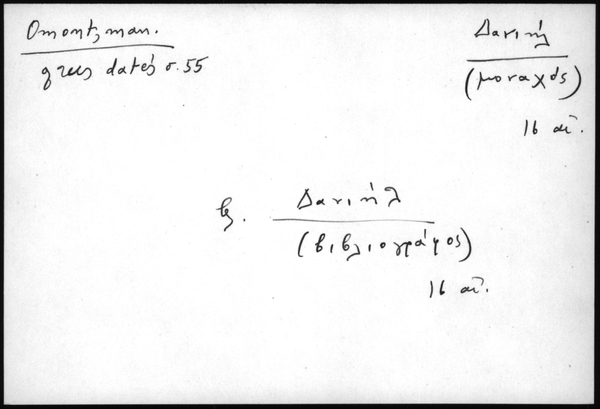 Omont, man.
grecs datés σ. 55
Δανιήλ
(μοναχός)
16 αἰ.
βλ. Δανιήλ
(βιβλιογράφος)
16 αἰ.